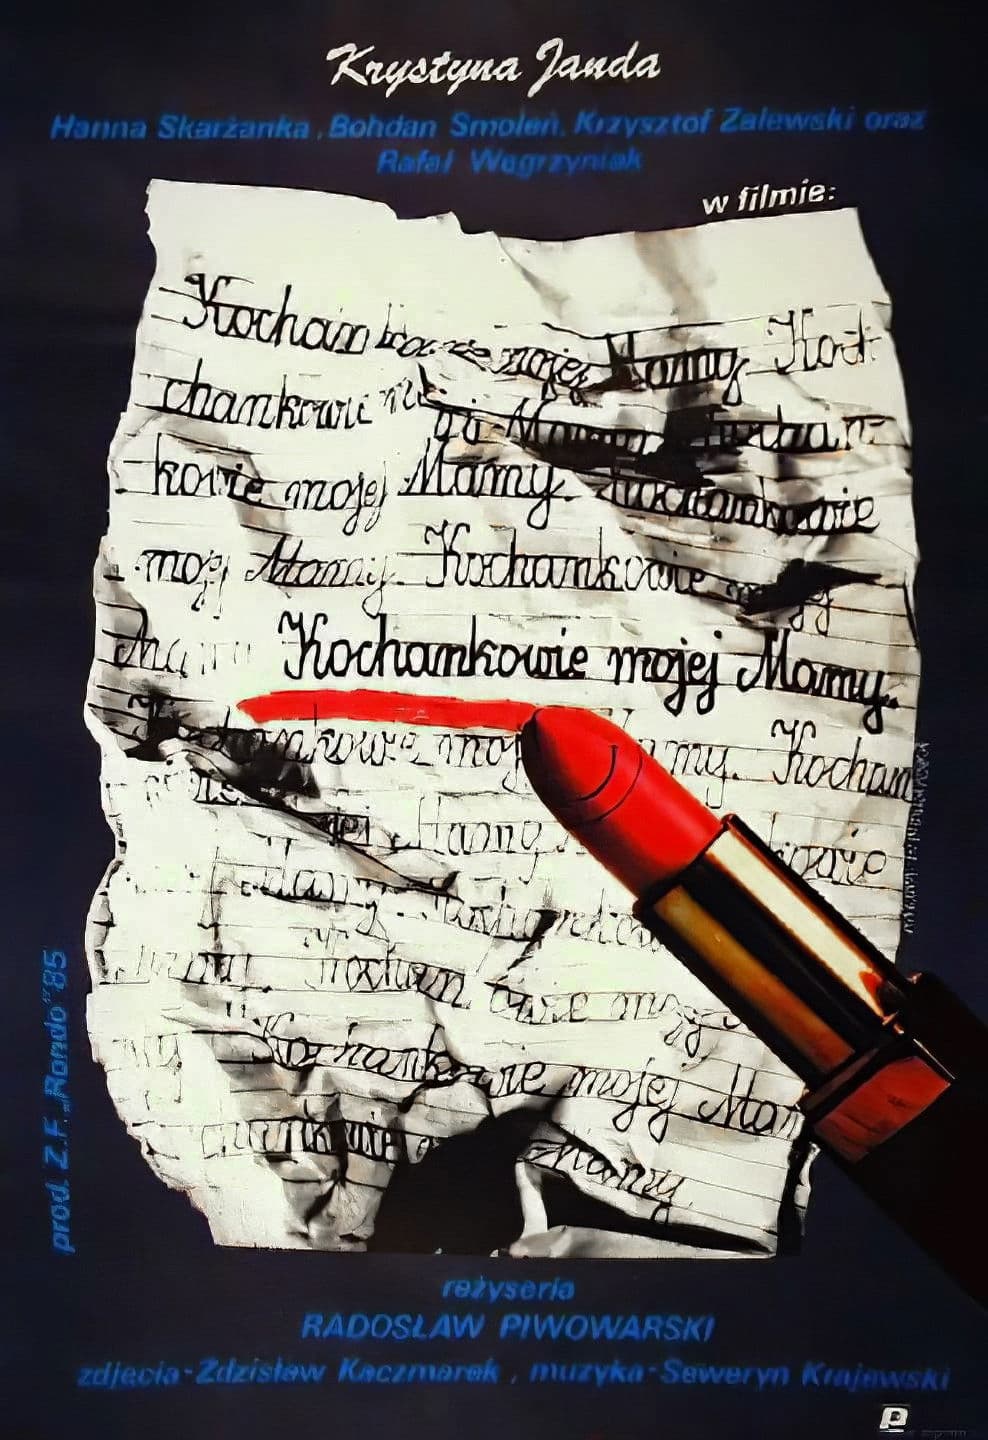 Krystyna Janda
Hanna Skarżanka, Bohdan Smoleń, Krzysztof Zalewski oraz
Rafał Węgrzyniak
w filmie:
Kochankowie mojej Mamy. Koch
chankowie mojej Mamy. Kochan
kowie mojej Mamy. Kochankowie
mojej Mamy. Kochankowie mojej
Mamy. Kochankowie mojej Mamy.
Kochankowie mojej Mamy. Kochan
mojej Mamy
Mamy. Kochankow
Mamy. Kochankowie mojej
my. Kochankowie mojej Mam
Mamy
prod. Z.F. „Rondo" 85
reżyseria
RADOSŁAW PIWOWARSKI
zdjęcia-Zdzisław Kaczmarek, muzyka-Seweryn Krajewski